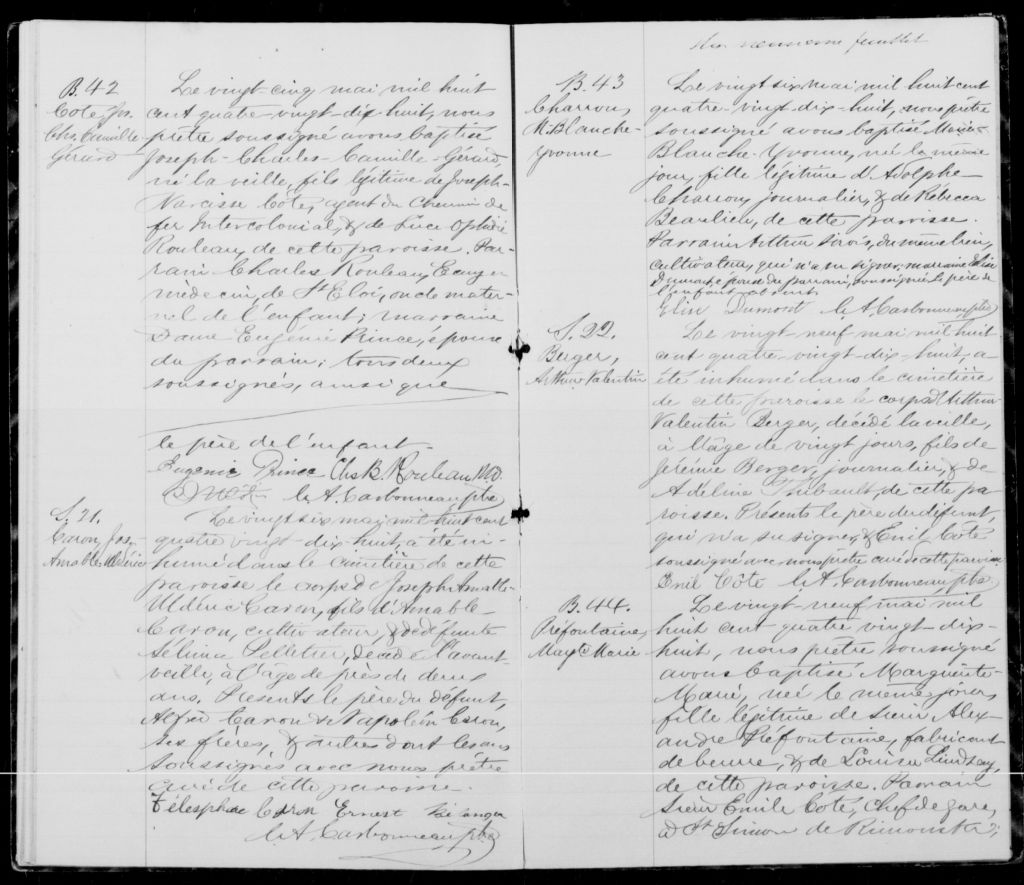 B. 42
Coté Jos.
Chs. Camille
Gérard
Le vingt cinq mai mil huit
cent quatre-vingt-dix-huit, nous
prêtre soussigné avons baptisé
Joseph-Charles-Camille-Gérard,
né la veille, fils légitime de Joseph-
Narcisse Coté, agent du Chemin de
fer Intercolonial, & de Luce
Rouleau, de cette paroisse. Par-
rain Charles Rouleau, Ecuyer
médecin, de St Eloi, oncle mater-
nel de l'enfant; marraine
Dame Eugénie Prince, épouse
du parrain; tous deux
soussignés, ainsi que
le père de l'enfant
Eugénie Prince Chs B. Rouleau MD.
L. A. Carbonneau ptre
S. 21.
Caron, Jos-
Amable
Le vingt six mai mil huit cent
quatre vingt-dix-huit, a été in-
humé dans le cimetière de cette
paroisse le corps de Joseph Amable-
Caron, fils d'Amable
Caron, cultivateur & de défunte
Sélina Pelletier, décédé l'avant-
veille, à l'âge de près de deux
ans. Présents le père du défunt,
Alfred Caron & Napoléon Caron,
ses frères, & autres dont les uns
soussignés avec nous prêtre
curé de cette paroisse.
Télesphore Caron Ernest Bélanger
L. A. Carbonneau ptre
feuillet
B. 43
Charron,
M. Blanche-
Yvonne
Le vingt six mai mil huit cent
quatre-vingt-dix-huit, nous prêtre
soussigné avons baptisé Marie-
Blanche-Yvonne, née le même
jour, fille légitime d'Adolphe
Charron, journalier, & de Rébecca
Beaulieu, de cette paroisse.
Parrain Arthur Sirois, du même lieu,
cultivateur, qui n'a su signer, marraine Elise
Dumont, épouse du parrain, soussignée. Le père de
l'enfant absent.
Elise Dumont L. A. Carbonneau ptre
S. 22.
Berger,
Arthur Valentin
Le vingt-neuf mai mil huit
cent quatre-vingt-dix-huit, a
été inhumé dans le cimetière
de cette paroisse le corps d'Arthur
Valentin Berger, décédé la veille,
à l'âge de vingt jours, fils de
Jérémie Berger, journalier, & de
Adéline Thibault, de cette pa-
roisse. Présents le père du défunt,
qui n'a su signer, & Emile Coté
soussigné avec nous prêtre curé de cette paroisse
Emil Coté L. A. Carbonneau ptre
B. 44.
Préfontaine,
Marg. Marie
Le vingt-neuf mai mil
huit cent quatre vingt-dix-
huit, nous prêtre soussigné
avons baptisé Marguerite-
Marie, née le même jour,
fille légitime de Sieur Alex-
andre Préfontaine, fabricant
de beurre, & de Louise Lindsay,
de cette paroisse. Parrain
Sieur Emile Coté, chef de gare,
à St Simon de Rimouski;